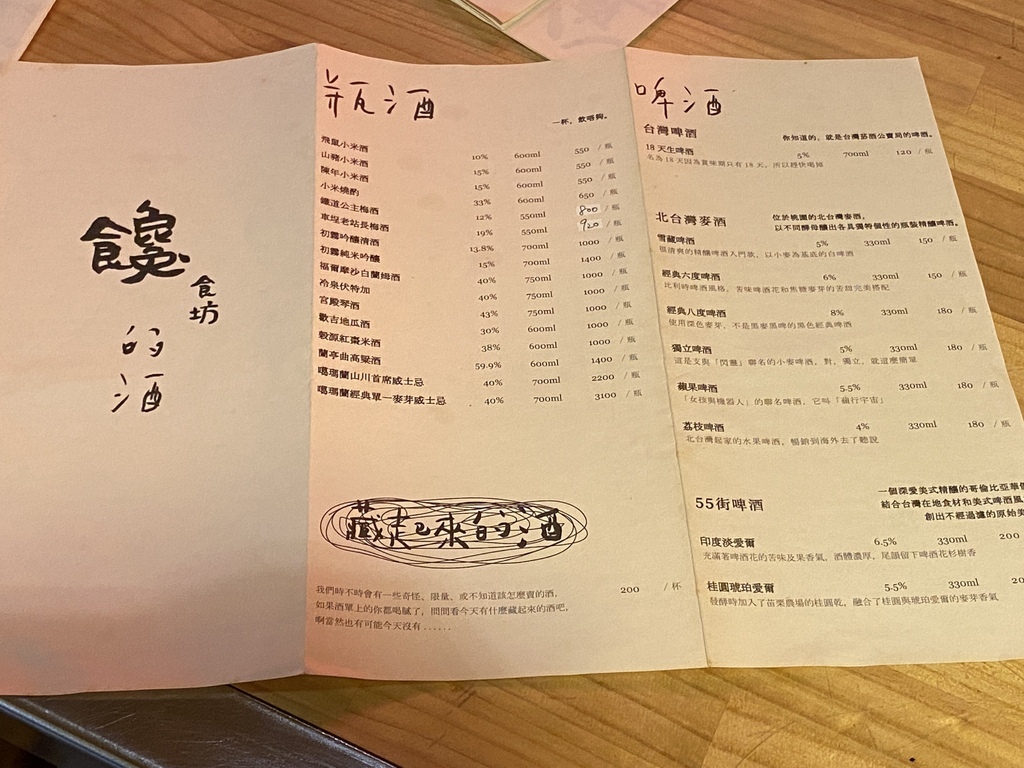 饞食坊
的
酒
瓶酒
一杯，飲唔夠。
飛鼠小米酒 10% 600ml 550 / 瓶
山豬小米酒 15% 600ml 550 / 瓶
陳年小米酒 15% 600ml 550 / 瓶
小米燒酌 33% 600ml 650 / 瓶
鐵道公主梅酒 12% 550ml 800 / 瓶
車埕老站長梅酒 19% 550ml 920 / 瓶
初霧吟釀清酒 13.8% 700ml 1000 / 瓶
初霧純米吟釀 15% 700ml 1400 / 瓶
福爾摩沙白蘭姆酒 40% 750ml 1000 / 瓶
冷泉伏特加 40% 750ml 1000 / 瓶
宮殿琴酒 43% 750ml 1000 / 瓶
歡吉地瓜酒 30% 600ml 1000 / 瓶
穀源紅棗米酒 38% 600ml 1000 / 瓶
蘭亭曲高粱酒 59.9% 600ml 1400 / 瓶
噶瑪蘭山川首席威士忌 40% 700ml 2200 / 瓶
噶瑪蘭經典單一麥芽威士忌 40% 700ml 3100 / 瓶
藏起來的酒
我們時不時會有一些奇怪、限量、或不知道該怎麼賣的酒， 200 / 杯
如果酒單上的你都喝膩了，問問看今天有什麼藏起來的酒吧，
啊當然也有可能今天沒有......
啤酒
台灣啤酒 你知道的，就是台灣菸酒公賣局的啤酒。
18 天生啤酒 5% 700ml 120 / 瓶
名為 18 天因為賞味期只有 18 天，所以趕快喝掉
北台灣麥酒 位於桃園的北台灣麥酒，
以不同酵母釀出各具獨特個性的瓶裝精釀啤酒。
雪藏啤酒 5% 330ml 150 / 瓶
很清爽的精釀啤酒入門款，以小麥為基底的白啤酒
經典六度啤酒 6% 330ml 150 / 瓶
比利時啤酒風格，苦味啤酒花和焦糖麥芽的苦甜完美搭配
經典八度啤酒 8% 330ml 180 / 瓶
使用深色麥芽，不是黑麥黑啤的黑色經典啤酒
獨立啤酒 5% 330ml 180 / 瓶
這是支與「閃靈」聯名的小麥啤酒，對，獨立，就這麼簡單
蘋果啤酒 5.5% 330ml 180 / 瓶
「女孩與機器人」的聯名啤酒，它叫「蘋行宇宙」
荔枝啤酒 4% 330ml 180 / 瓶
北台灣起家的水果啤酒，暢銷到海外去了聽說
55街啤酒 一個深愛美式精釀的哥倫比亞華
結合台灣在地食材和美式啤酒風
創出不經過濾的原始美
印度淡愛爾 6.5% 330ml 200
充滿著啤酒花的苦味及果香氣，酒體濃厚，尾韻留下啤酒花杉樹香
桂圓琥珀愛爾 5.5% 330ml 200
發酵時加入了苗栗農場的桂圓乾，融合了桂圓與琥珀愛爾的麥芽香氣